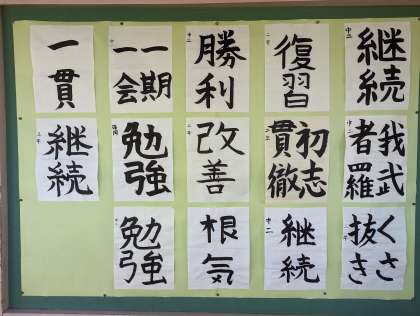 継続
復習
勝利
一期
一会
一貫
我武
者羅
初志
貫徹
改善
勉強
継続
くさ
抜き
継続
中二
根気
勉強